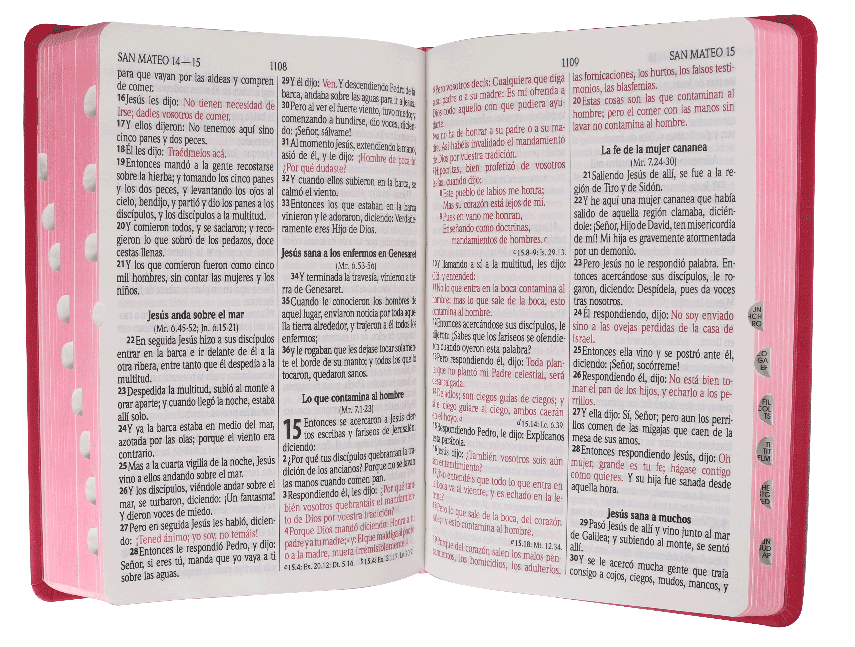 SAN MATEO 14—15
1108
para que vayan por las aldeas y compren
de comer.
16Jesús les dijo: No tienen necesidad de
irse; dadles vosotros de comer.
17Y ellos dijeron: No tenemos aquí sino
cinco panes y dos peces.
18Él les dijo: Traédmelos acá.
19Entonces mandó a la gente recostarse
sobre la hierba; y tomando los cinco panes
y los dos peces, y levantando los ojos al
cielo, bendijo, y partió y dio los panes a los
discípulos, y los discípulos a la multitud.
20Y comieron todos, y se saciaron; y reco-
gieron lo que sobró de los pedazos, doce
cestas llenas.
21Y los que comieron fueron como cinco
mil hombres, sin contar las mujeres y los
niños.
Jesús anda sobre el mar
(Mr. 6.45-52; Jn. 6.15-21)
22En seguida Jesús hizo a sus discípulos
entrar en la barca e ir delante de él a la
otra ribera, entre tanto que él despedía a la
multitud.
23Despedida la multitud, subió al monte a
orar aparte; y cuando llegó la noche, estaba
allí solo.
24Y ya la barca estaba en medio del mar,
azotada por las olas; porque el viento era
contrario.
25Mas a la cuarta vigilia de la noche, Jesús
vino a ellos andando sobre el mar.
26Y los discípulos, viéndole andar sobre el
mar, se turbaron, diciendo: ¡Un fantasma!
Y dieron voces de miedo.
27Pero en seguida Jesús les habló, dicien-
do: ¡Tened ánimo; yo soy, no temáis!
28Entonces le respondió Pedro, y dijo:
Señor, si eres tú, manda que yo vaya a ti
sobre las aguas.
29Y él dijo: Ven. Y descendiendo Pedro de la
barca, andaba sobre las aguas para ir a Jesús.
30Pero al ver el fuerte viento, tuvo miedo; y
comenzando a hundirse, dio voces, dicien-
do: ¡Señor, sálvame!
31Al momento Jesús, extendiendo la mano,
asió de él, y le dijo: ¡Hombre de poca fe!
¿Por qué dudaste?
32Y cuando ellos subieron en la barca, se
calmó el viento.
33Entonces los que estaban en la barca
vinieron y le adoraron, diciendo: Verdade-
ramente eres Hijo de Dios.
Jesús sana a los enfermos en Genesaret
(Mr. 6.53-56)
34Y terminada la travesía, vinieron a tie-
rra de Genesaret.
35Cuando le conocieron los hombres de
aquel lugar, enviaron noticia por toda aque-
lla tierra alrededor, y trajeron a él todos los
enfermos;
36y le rogaban que les dejase tocar solamen-
te el borde de su manto; y todos los que lo
tocaron, quedaron sanos.
Lo que contamina al hombre
(Mr. 7.1-23)
15 Entonces se acercaron a Jesús cier-
tos escribas y fariseos de Jerusalén,
diciendo:
2¿Por qué tus discípulos quebrantan la tra-
dición de los ancianos? Porque no se lavan
las manos cuando comen pan.
3Respondiendo él, les dijo: ¿Por qué tam-
bién vosotros quebrantáis el mandamien-
to de Dios por vuestra tradición?
4Porque Dios mandó diciendo: Honra a tu
padre y a tu madre; y: El que maldiga al padre
o a la madre, muera irremisiblemente.
15.4: Ex. 20.12; Dt. 5.16. 15.4: Ex. 21.17; Lv.
1109
SAN MATEO 15
Pero vosotros decís: Cualquiera que diga
a su padre o a su madre: Es mi ofrenda a
Dios todo aquello con que pudiera ayu-
darte,
ya no ha de honrar a su padre o a su ma-
dre. Así habéis invalidado el mandamiento
de Dios por vuestra tradición.
Hipócritas, bien profetizó de vosotros
Isaías, cuando dijo:
Este pueblo de labios me honra;
Mas su corazón está lejos de mí.
Pues en vano me honran,
Enseñando como doctrinas,
mandamientos de hombres.
15.8-9: Is. 29.13.
Y llamando a sí a la multitud, les dijo:
Oíd, y entended:
No lo que entra en la boca contamina al
hombre; mas lo que sale de la boca, esto
contamina al hombre.
Entonces acercándose sus discípulos, le
dijeron: ¿Sabes que los fariseos se ofendie-
ron cuando oyeron esta palabra?
Pero respondiendo él, dijo: Toda plan-
ta que no plantó mi Padre celestial, será
desarraigada.
Dejadlos; son ciegos guías de ciegos; y
si el ciego guiare al ciego, ambos caerán
en el hoyo.
15.14: Lc. 6.39.
Respondiendo Pedro, le dijo: Explícanos
esta parábola.
Jesús dijo: ¿También vosotros sois aún
sin entendimiento?
¿No entendéis que todo lo que entra en
la boca va al vientre, y es echado en la le-
Pero lo que sale de la boca, del corazón
sale; y esto contamina al hombre.
15.18: Mt. 12.34.
Porque del corazón salen los malos pen-
samientos, los homicidios, los adulterios,
las fornicaciones, los hurtos, los falsos testi-
monios, las blasfemias.
20Estas cosas son las que contaminan al
hombre; pero el comer con las manos sin
lavar no contamina al hombre.
La fe de la mujer cananea
(Mr. 7.24-30)
21Saliendo Jesús de allí, se fue a la re-
gión de Tiro y de Sidón.
22Y he aquí una mujer cananea que había
salido de aquella región clamaba, dicién-
dole: ¡Señor, Hijo de David, ten misericordia
de mí! Mi hija es gravemente atormentada
por un demonio.
23Pero Jesús no le respondió palabra. En-
tonces acercándose sus discípulos, le ro-
garon, diciendo: Despídela, pues da voces
tras nosotros.
24Él respondiendo, dijo: No soy enviado
sino a las ovejas perdidas de la casa de
Israel.
25Entonces ella vino y se postró ante él,
diciendo: ¡Señor, socórreme!
26Respondiendo él, dijo: No está bien to-
mar el pan de los hijos, y echarlo a los pe-
rrillos.
27Y ella dijo: Sí, Señor; pero aun los perri-
llos comen de las migajas que caen de la
mesa de sus amos.
28Entonces respondiendo Jesús, dijo: Oh
mujer, grande es tu fe; hágase contigo
como quieres. Y su hija fue sanada desde
aquella hora.
Jesús sana a muchos
29Pasó Jesús de allí y vino junto al mar
de Galilea; y subiendo al monte, se sentó
allí.
30Y se le acercó mucha gente que traía
consigo a cojos, ciegos, mudos, mancos, y